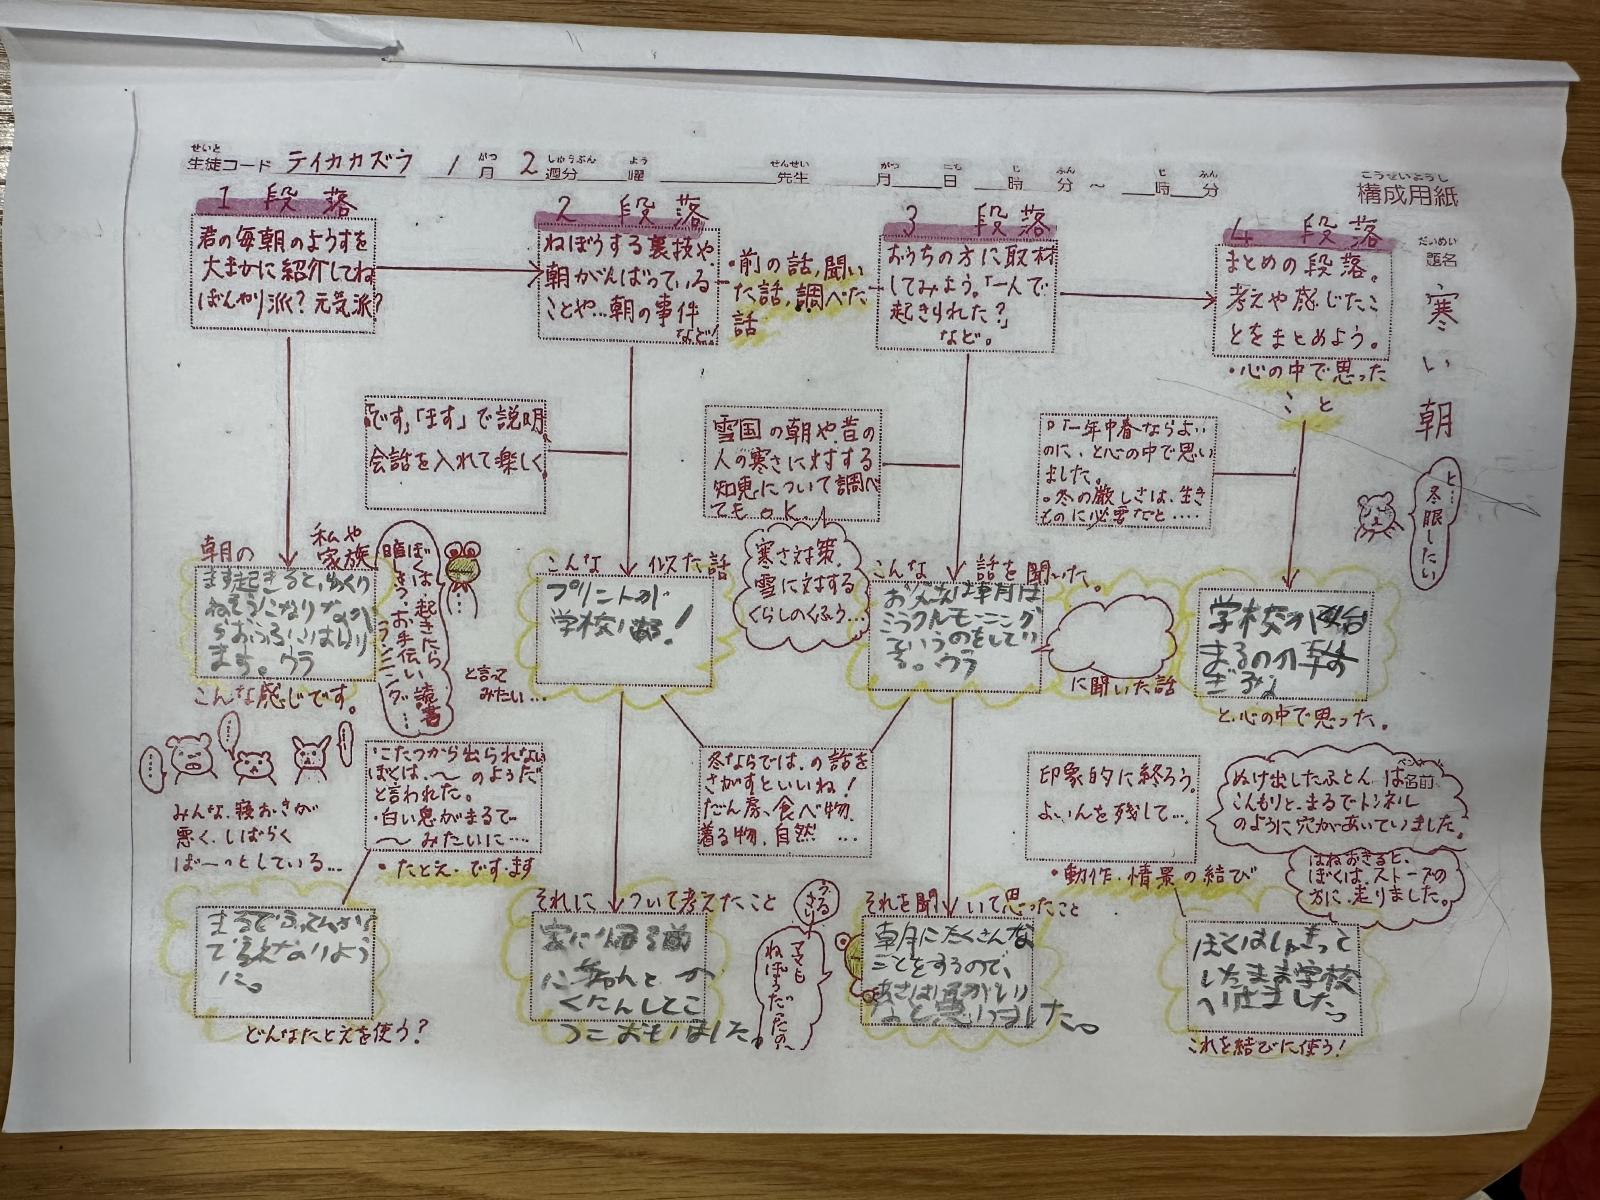 せいと
生徒コード テイカカズラ 1月 2週分 曜 先生 月 日 時 分 ~ 時 分
がつ しゅうぶん よう せんせい がつ にち じ ふん じ ふん
こうせいようし
構成用紙
だいめい
題名
寒い朝
1 段落
君の毎朝のようすを
大まかに紹介してね
ぼんやり派?元気派?
2 段落
ねぼうする裏技や、
朝がんばっている
ことや…朝の事件
など!
・前の話、聞い
た話、調べた
話
3 段落
おうちの方に取材
してみよう。「一人で
起きられた?」
など。
4 段落
まとめの段落。
考えや感じたこ
とをまとめよう。
・心の中で思った
こと
「です」「ます」で説明
会話を入れて楽しく
雪国の朝や、昔の
人の寒さに対する
知恵について調べ
てもOK
一年中春ならよい
のに、と心の中で思い
ました。
。冬の厳しさは、生き
ものに必要なと……
と…
冬眠したい
朝の
私や
家族
まず起きると、ゆっくり
ます。ウラ
こんな感じです。
ぼくは、起きたら
お手伝い
読書
ランニング…
と言って
みたい…
こんな 似た話
プリントが
学校にある!
寒さ対策、
雪に対する
くらしのくふう…
こんな 話を聞いた。
お父さんは毎月は
ミラクルモーニング
というのをしてい
る。ウラ
に聞いた話
学校の
と、心の中で思った。
みんな、寝おきが
悪く、しばらく
ぼーっとしている…
・こたつから出られない
ぼくは、~のようだ
と言われた。
・白い息がまるで
~みたいに…
・たとえ・です・ます
冬ならでは、の話を
さがすといいね!
だん房、食べ物、
着る物、自然…
印象的に終ろう。
よいんを残して…
・動作・情景の結び
ぬけ出したふとんは
こんもりと、まるでトンネル
のように穴があいていました。
はねおきると、
ぼくは、ストーブの
方に、走りました。
まるで
に。
どんなたとえを使う?
それに ついて考えたこと
家に帰る前
におもいました。
うるさい
ママも
ねぼうだったの~
それを聞いて思ったこと
朝にたくさんな
ことをするので、
なと思いました。
ぼくは
したまま学校
へ行きました。
これを結びに使う!